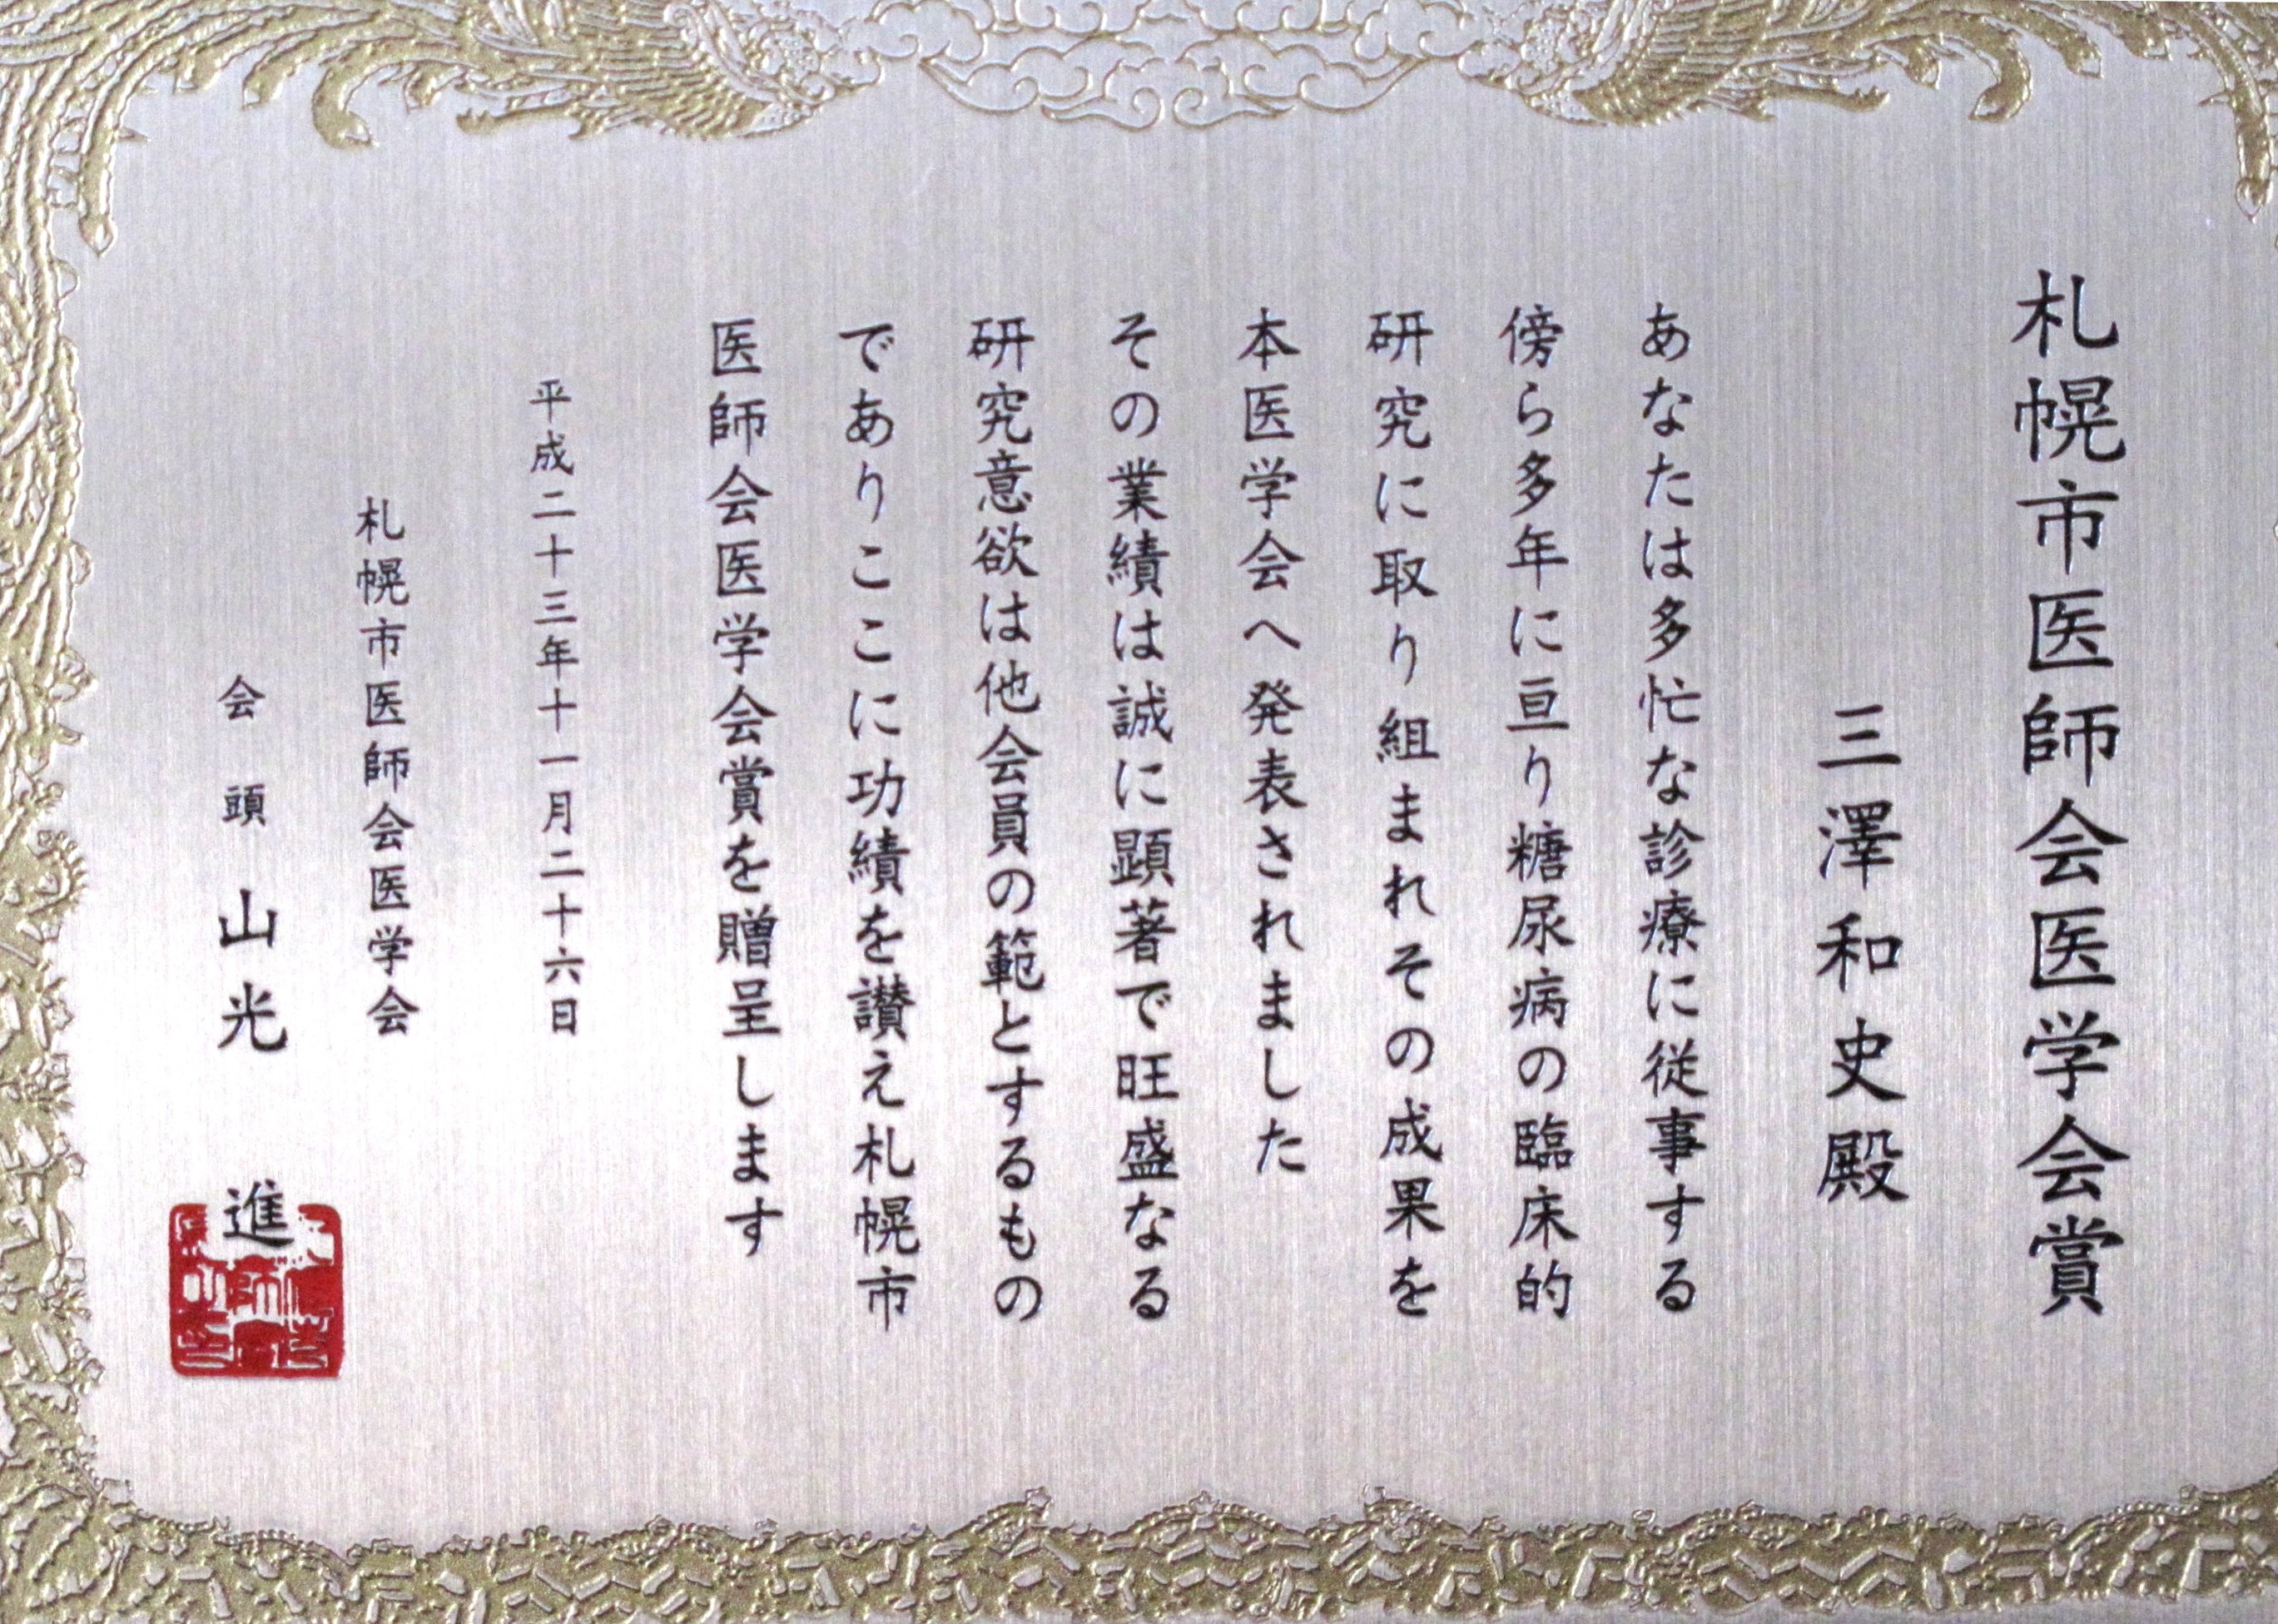 札幌市医師会医学会賞
三澤和史殿
あなたは多忙な診療に従事する
傍ら多年に亘り糖尿病の臨床的
研究に取り組まれその成果を
本医学会へ発表されました
その業績は誠に顕著で旺盛なる
研究意欲は他会員の範とするもの
でありここに功績を讃え札幌市
医師会医学会賞を贈呈します
平成二十三年十一月二十六日
札幌市医師会医学会
会頭 山光 進